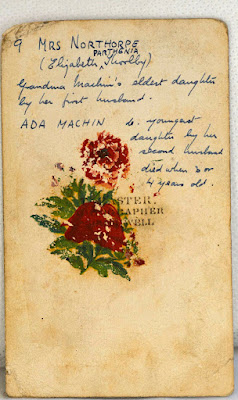 9 MRS NORTHORPE
PARTHENIA
(Elizabeth, Thoolby)
Grandma Machin's eldest daughter
by her first husband.
ADA MACHIN is youngest
daughter by her
second husband
died when 3 or
4 years old.
STER.
RAPHER
WELL